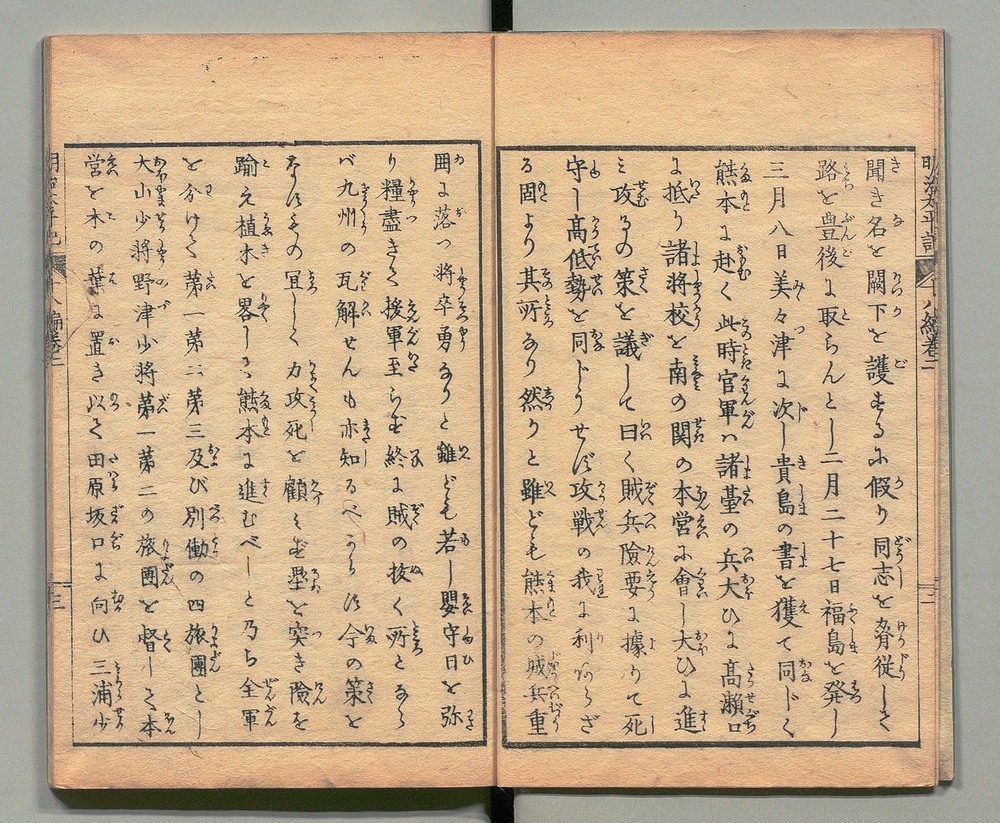 明治太平記 十八編巻二 二
聞き名を闕下を護するに假り同志を脅従して
路を豊後に取らんとし二月二十七日福島を発し
三月八日美々津に次し貴島の書を獲て同じく
熊本に赴く此時官軍ハ諸臺の兵大ひに高瀬口
に抵り諸将校を南の関の本営に會し大ひに進
ミ攻るの策を議して曰く賊兵險要に據りて死
守し高低勢を同じうせず攻戦の我に利あらざ
る固より其所なり然りと雖ども熊本の城兵重
囲に落つ将卒勇なりと雖ども若し嬰守日を弥
り糧盡きて援軍至らず終に賊の抜く所となら
バ九州の瓦解せんも亦知るべからず今の策を
なすその宜しく力攻死を顧ミず塁を突き險を
踰え植木を畧し熊本に進むべしと乃ち全軍
を分けて第一第二第三及び別働の四旅團とし
大山少将野津少将第一第二の旅團を督して本
営を木の葉に置き以て田原坂口に向ひ三浦少
明治太平記 十八編巻二 三